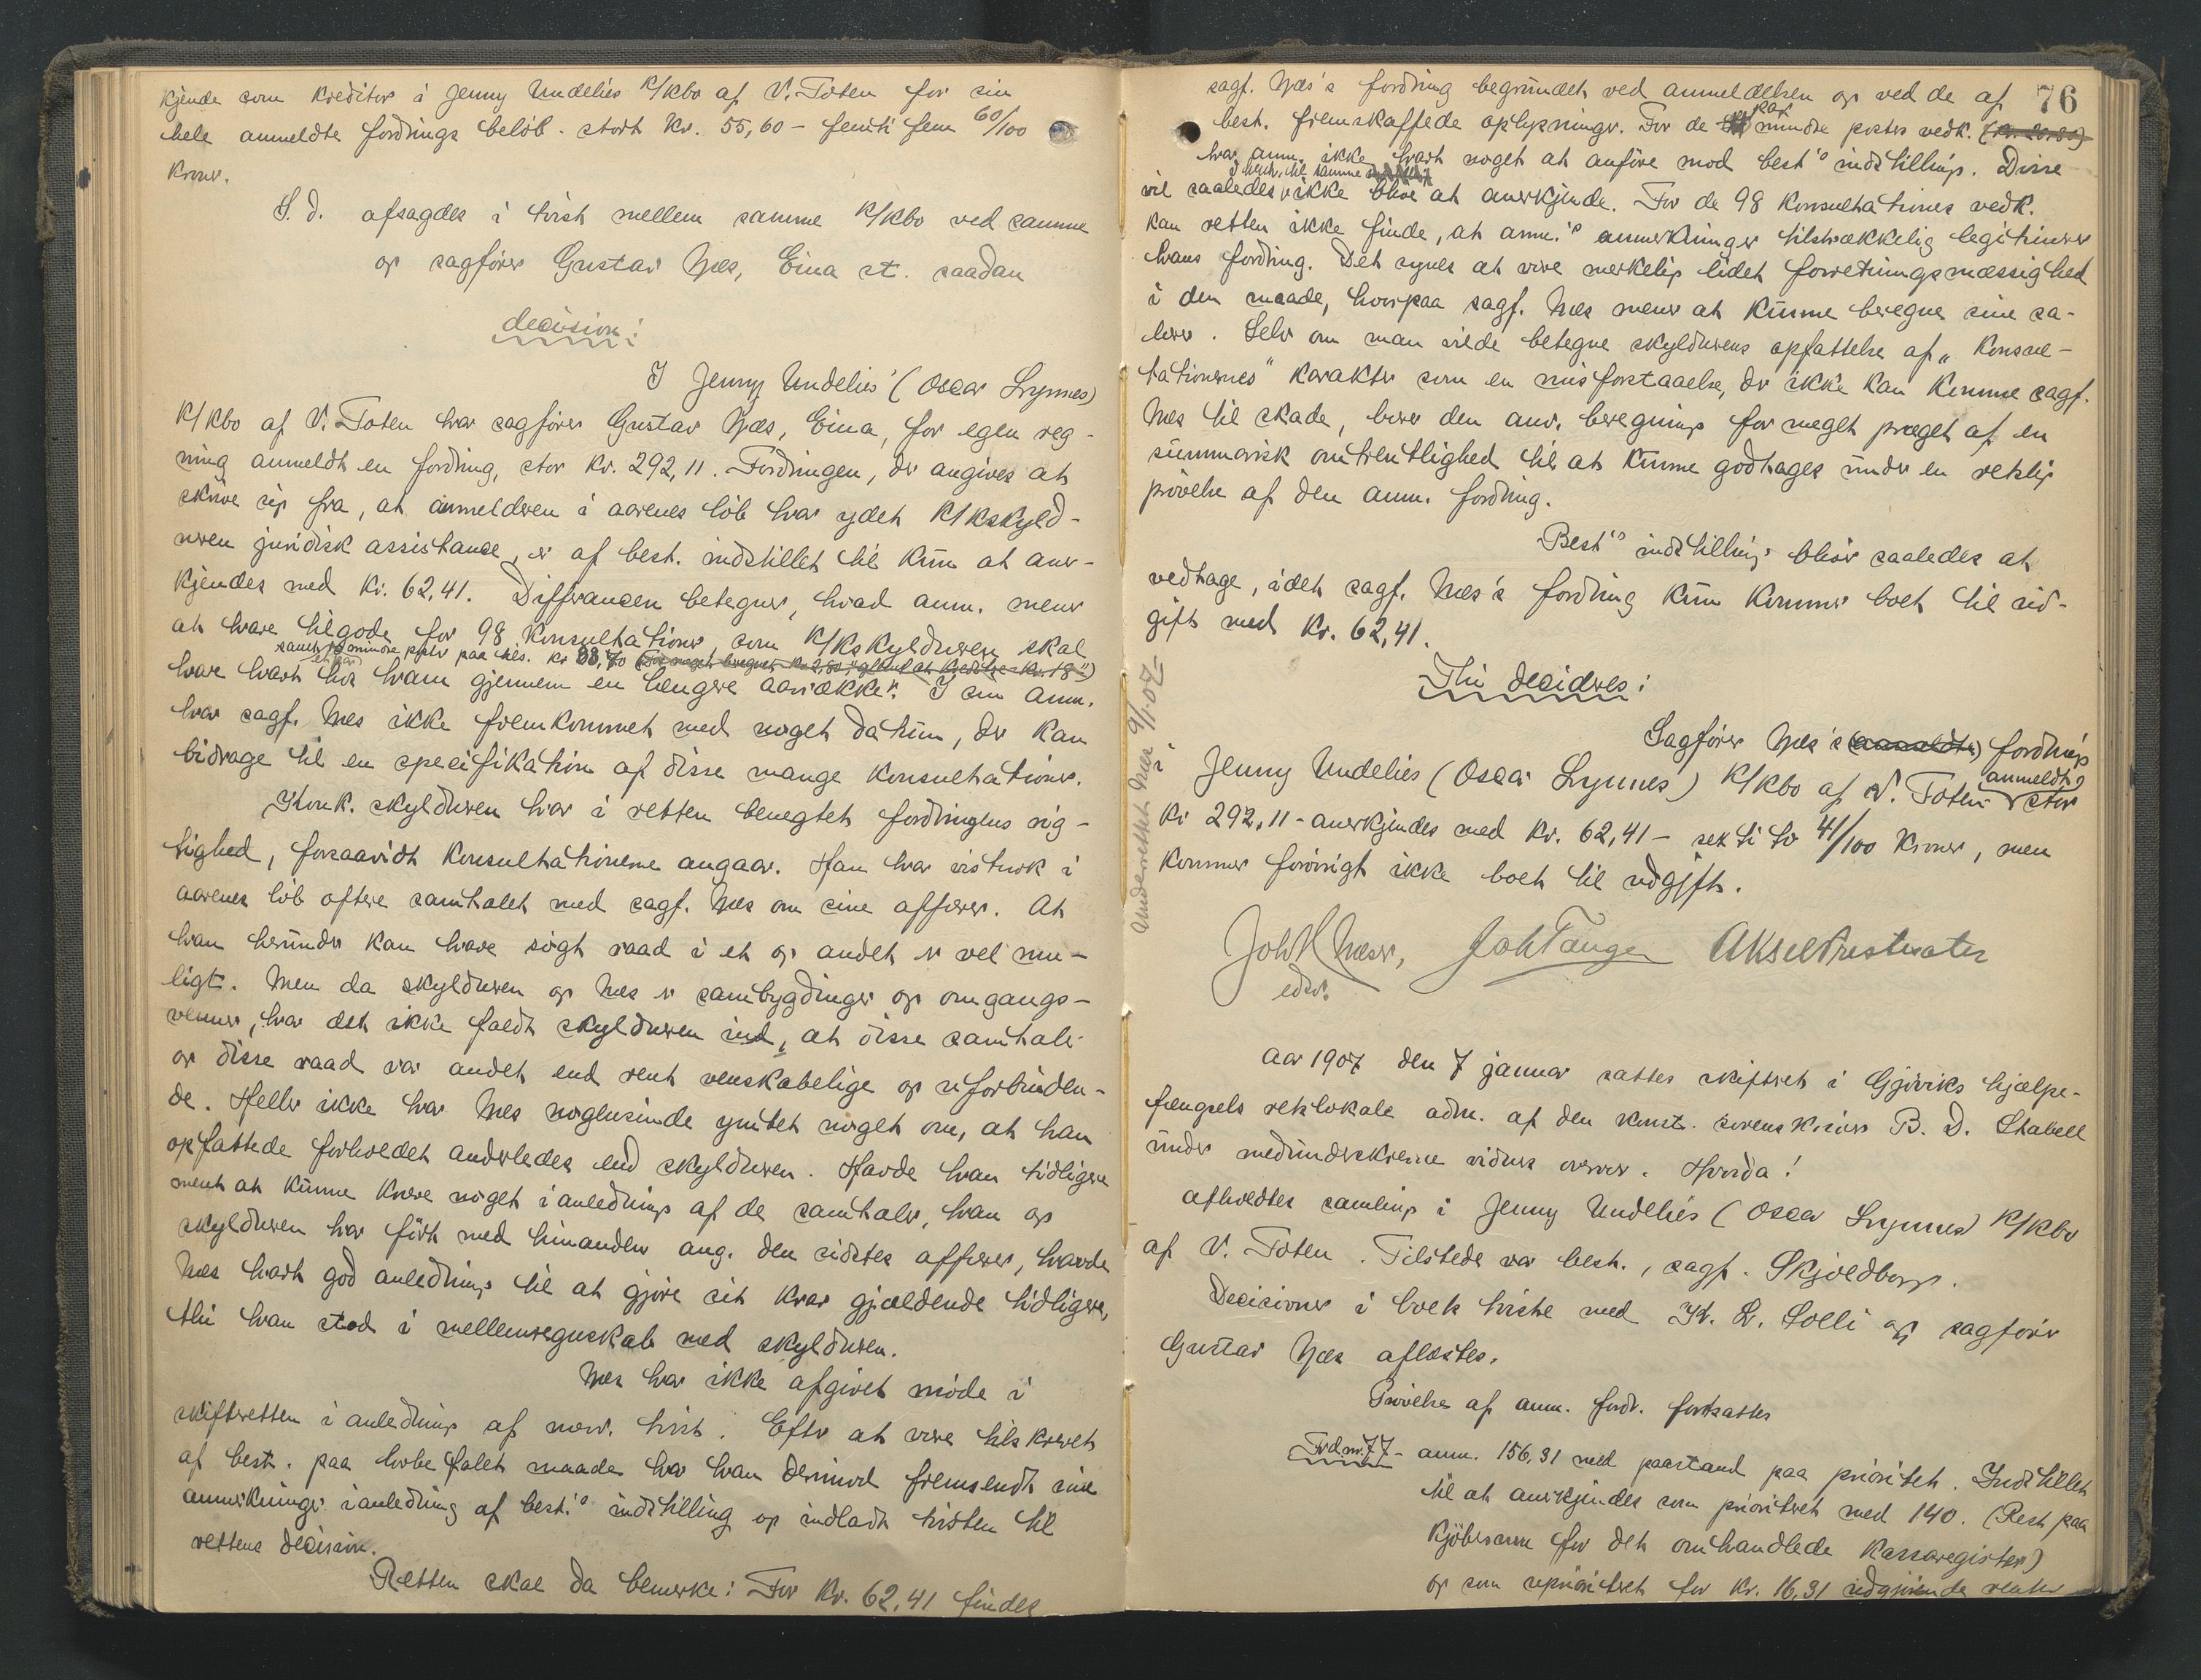 kjende som kreditor i Jenny Undelies K/Kbo af V. Toten for sin
hele anmeldte fordrings beløb - stort Kr. 55,60 - femti fem 60/100
kroner.
S. D. afsagdes i tvist mellem samme K/Kbo ved samme
og sagfører Gustav Næs, Eina st. saadan
decision:
I Jenny Undelies' (Oscar Lynnes)
K/Kbo af V. Toten har sagfører Gustav Næs, Eina, for egen reg-
ning anmeldt en fordring, stor Kr. 292,11. Fordringen, der angives at
skrive sig fra, at anmelderen i aarenes løb har ydet K/Kskyld-
neren juridisk assistance, er af best. indstillet til kun at aner-
kjendes med Kr. 62,41. Differancen betegner, hvad anm. mener
at have tilgode for 98 konsultationer som K/Kskyldneren skal
samt et par mindre poster paa tils. kr 33,70
have havt hos ham gjennem en længere aarrække". I sin anm.
har sagf. Næs ikke fremkommet med noget datum, der kan
bidrage til en specifikation af disse mange konsultationer.
Konk. skyldneren har i retten benegtet fordringens rig-
tighed, forsaavidt konsultationerne angaar. Han har vistnok i
aarenes løb oftere samtalet med sagf. Næs om sine affærer. At
han herunder kan have søgt raad i et og andet er vel mu-
ligt. Men da skyldneren og Næs er sambygdinger og omgangs-
venner, har det ikke faldt skyldneren ind, at disse samtaler
og disse raad var andet end rent venskabelige og uforbinden-
de. Heller ikke har Næs nogensinde ymtet noget om, at han
opfattede forholdet anderledes end skyldneren. Havde han tidligere
ment at kunne kræve noget i anledning af de samtaler, han og
skyldneren har ført med hinanden ang. den sidstes affærer, havde
Næs havt god anledning til at gjøre sit krav gjældende tidligere,
thi han stod i mellemregnskab med skyldneren.
Næs har ikke afgivet møde i
skifteretten i anledning af nærv. tvist. Efter at være tilskrevet
af best. paa lovbefalet maade har han derimod fremsendt sine
anmerkninger i anledning af best.'s indstilling og indladt tvisten til
rettens decision.
Retten skal da bemerke: For Kr. 62,41 findes
76
sagf. Næs's fordring begrundet ved anmeldelsen og ved de af
best. fremskaffede oplysninger. For de par mindre poster vedk.
har anm. ikke havt noget at anføre mod best's indstilling. Disse
vil saaledes ikke blive at anerkjende. For de 98 konsultationer vedk.
kan retten ikke finde, at anm.'s anmerkninger tilstrækkelig legitimerer
hans fordring. Det synes at være merkelig lidet forretningsmæssighed
i den maade, hvorpaa sagf. Næs mener at kunne beregne sine sa-
lærer. Selv om man vilde betegne skyldnerens opfattelse af "konsul-
tationernes" karakter som en misforstaaelse, der ikke kan komme sagf.
Næs til skade, bærer den anv. beregning for meget præget af en
summarisk omtrentlighed til at kunne godtages under en retslig
prøvelse af den anm. fordring.
Best's indstilling blir saaledes at
vedtage, idet sagf. Næs's fordring kun kommer boet til ud-
gift med Kr. 62,41.
Thi decideres:
Sagfører Næs's (anmeldte) fordring
i Jenny Undelies (Oscar Lynnes) K/Kbo af V. Toten anmeldt stor
Kr 292,11 - anerkjendes med Kr. 62,41 - sexti to 41/100 Kroner, men
kommer forøvrigt ikke boet til udgift.
Underrettet Næs 9/1-07
Joh Tangen Aksel Prestsæter
edsv.
Aar 1907 den 7 januar sattes skifteret i Gjøviks hjælpe-
fængsels retslokale adm. af den konst. sorenskriver B. D. Stabell
under medunderskrevne vidners overvær. Hvorda!
afholdtes samling i Jenny Undelies (Oscar Lynnes) K/Kbo
af V. Toten. Tilstede var best., sagf. Skjoldborg.
Decisioner i boets tviste med K. L. Solli og sagfører
Gustav Næs aflæstes.
Prøvelse af anm. fordr. fortsattes
Frd nr. 77 - anm. 156,31 med paastand paa prioritet. Indstillet
til at anerkjendes som prioriteret med 140. (Rest paa
kjøbesum for det omhandlede kassaregister)
og som uprioriteret for Kr. 16,31 udgjørende renter